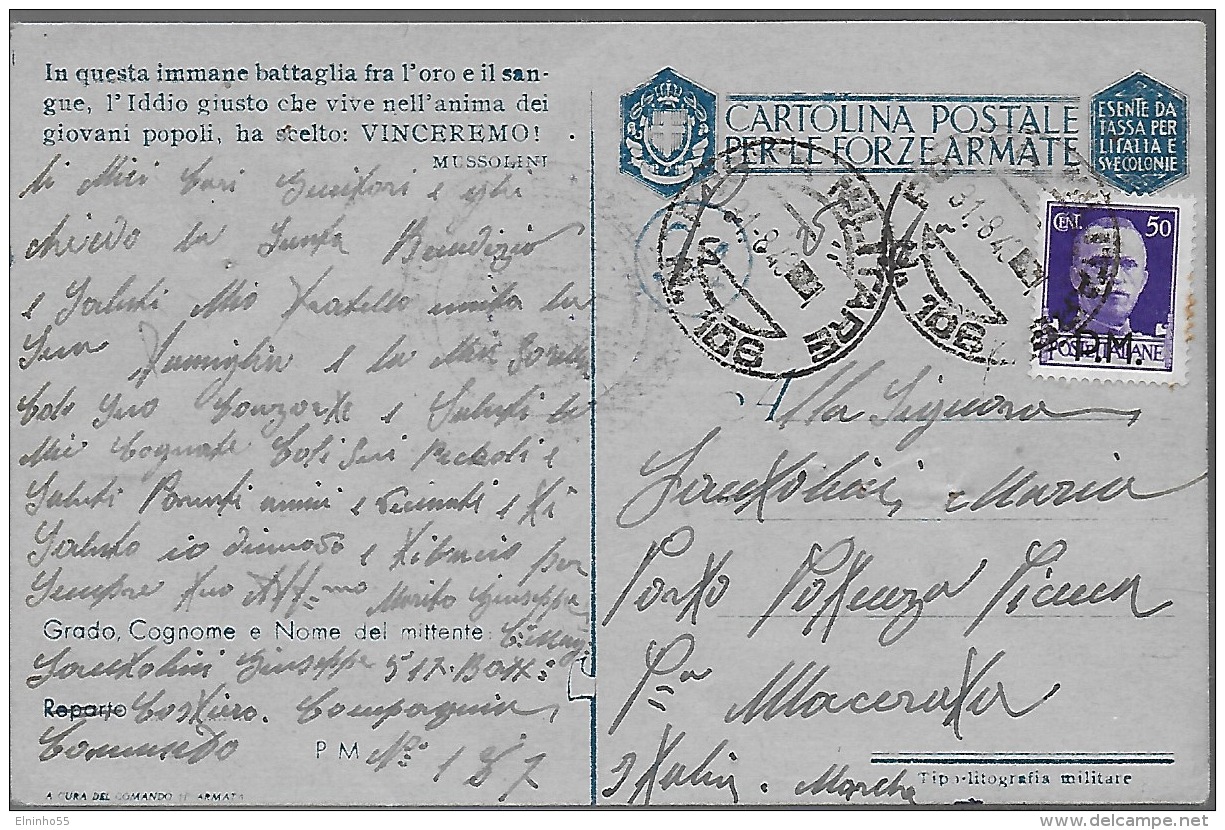 In questa immane battaglia fra l'oro e il san-
gue, l'Iddio giusto che vive nell'anima dei
giovani popoli, ha scelto: VINCEREMO!
MUSSOLINI
li Miei Cari Genitori e
chiedo la Santa Benedizio
e Saluti Mio Fratello unito la
Sua Famiglia e la Mia Sorella
Col Suo Conzorte e Saluti la
Mie Cognate Coli Sui Piccoli e
Saluti Parenti amici e vicinati e ti
Saluto io dinuovo e ti bacio per
Sempre tuo Aff-mo Marito Giuseppe
Grado, Cognome e Nome del mittente: C.
Santolini Giuseppe 517. Batt:
Reparto Costiero. Compagnia
Comando P M No: 157
A CURA DEL COMANDO FF. ARMATE
CARTOLINA POSTALE
PER LE FORZE ARMATE
ESENTE DA
TASSA PER
L'ITALIA E
SUE COLONIE
MILITARE
31-8 43
N. 106
CENT. 50
POSTE ITALIANE
P.M.
Alla Signora
Santolini Maria
Porto Potenza Picena
Pr Macerata
Italia. Marche
Tipo-litografia militare
Elninho55
delcampe.net